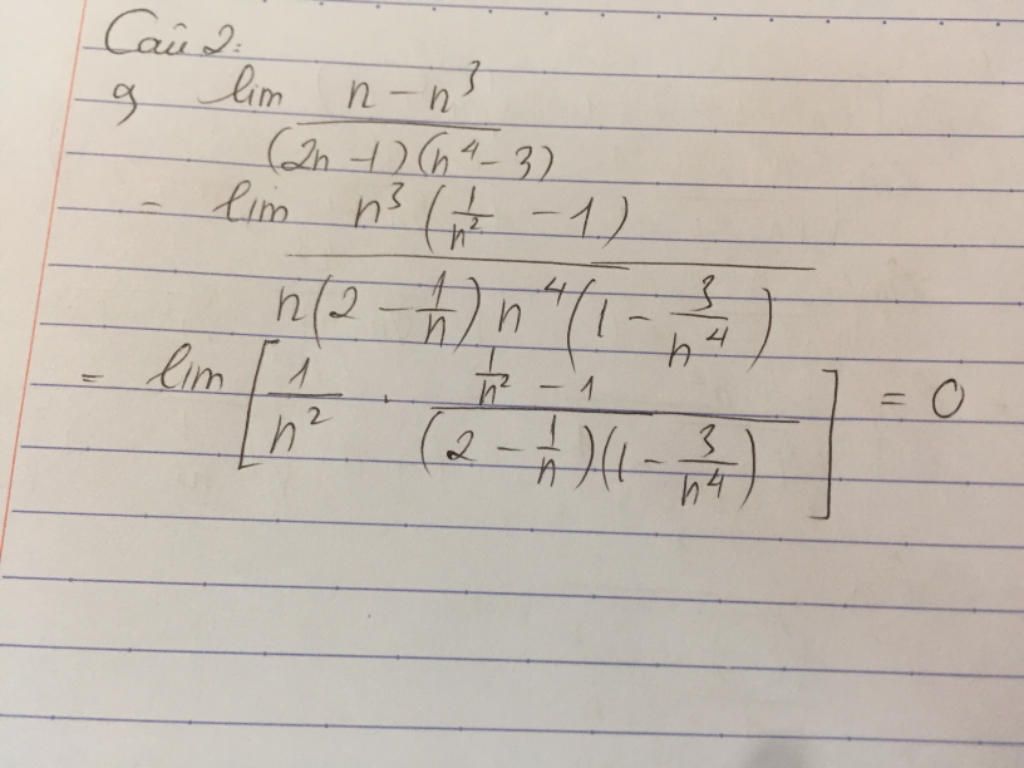 Câu 2:
a) lim (n - n³) / ((2n - 1)(n⁴ - 3))
= lim (n³(1/n² - 1)) / (n(2 - 1/n) n⁴(1 - 3/n⁴))
= lim [1/n² · (1/n² - 1) / ((2 - 1/n)(1 - 3/n⁴))] = 0